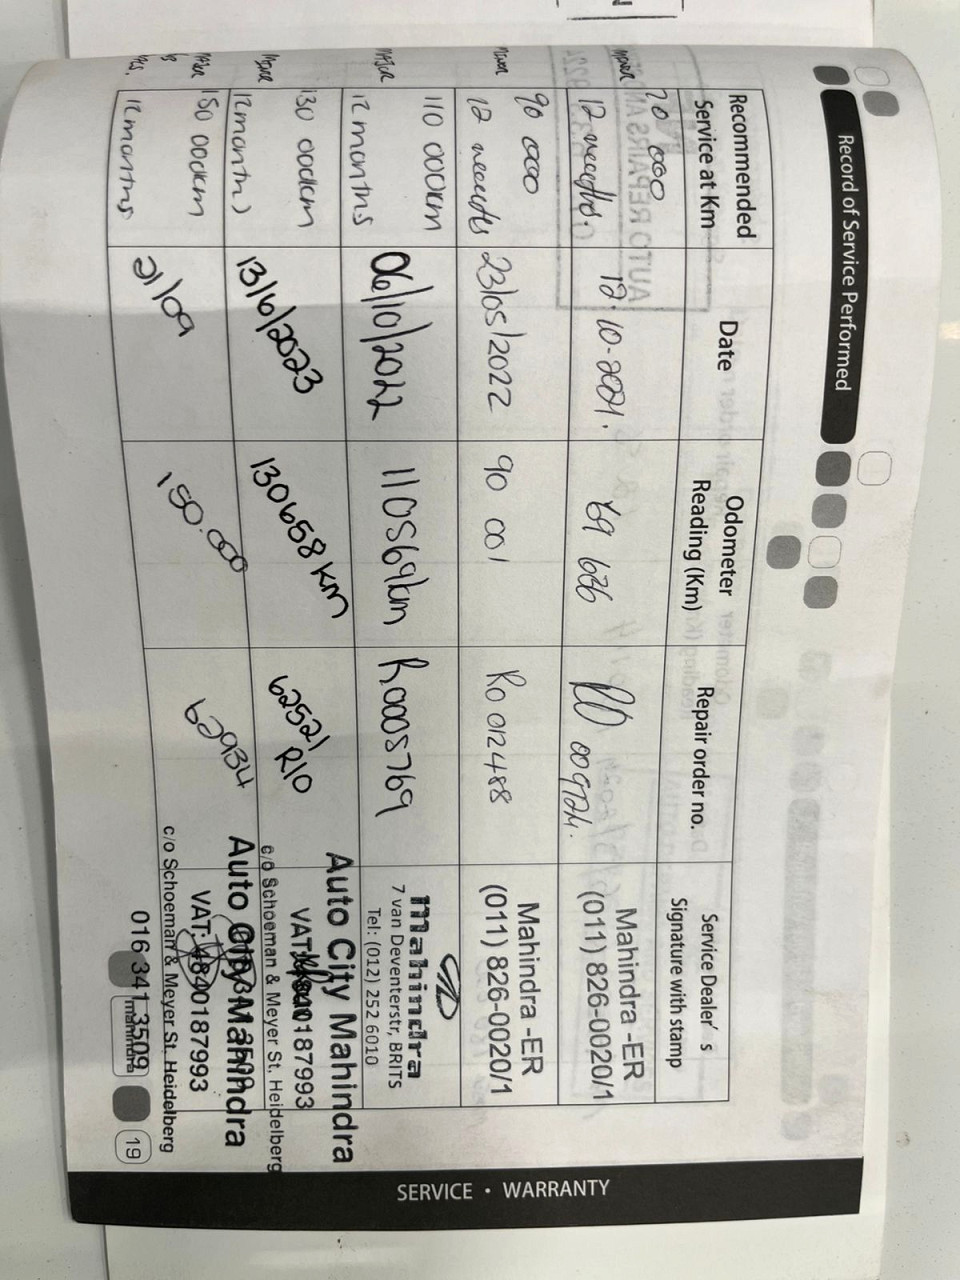 Record of Service Performed
Recommended Service at Km
Date
Odometer Reading (Km)
Repair order no.
Service Dealer's Signature with stamp
70 000
12
12-10-2021.
69 636
RO 009724.
Mahindra -ER
(011) 826-0020/1
90 000
12
23/05/2022
90 001
RO 012488
Mahindra -ER
(011) 826-0020/1
Major
110 000km
12 months
06/10/2022
110569km
R0005769
mahindra
7 van Deventerstr, BRITS
Tel: (012) 252 6010
130 000km
12 months
13/6/2023
130658km
62521
R/O
Auto City Mahindra
VAT: 4840187993
c/o Schoeman & Meyer St. Heidelberg
150 000km
12 months
21/09
150.000
62934
Auto City Mahindra
VAT: 4840187993
c/o Schoeman & Meyer St. Heidelberg
016 341 3509
mahindra
19
SERVICE • WARRANTY